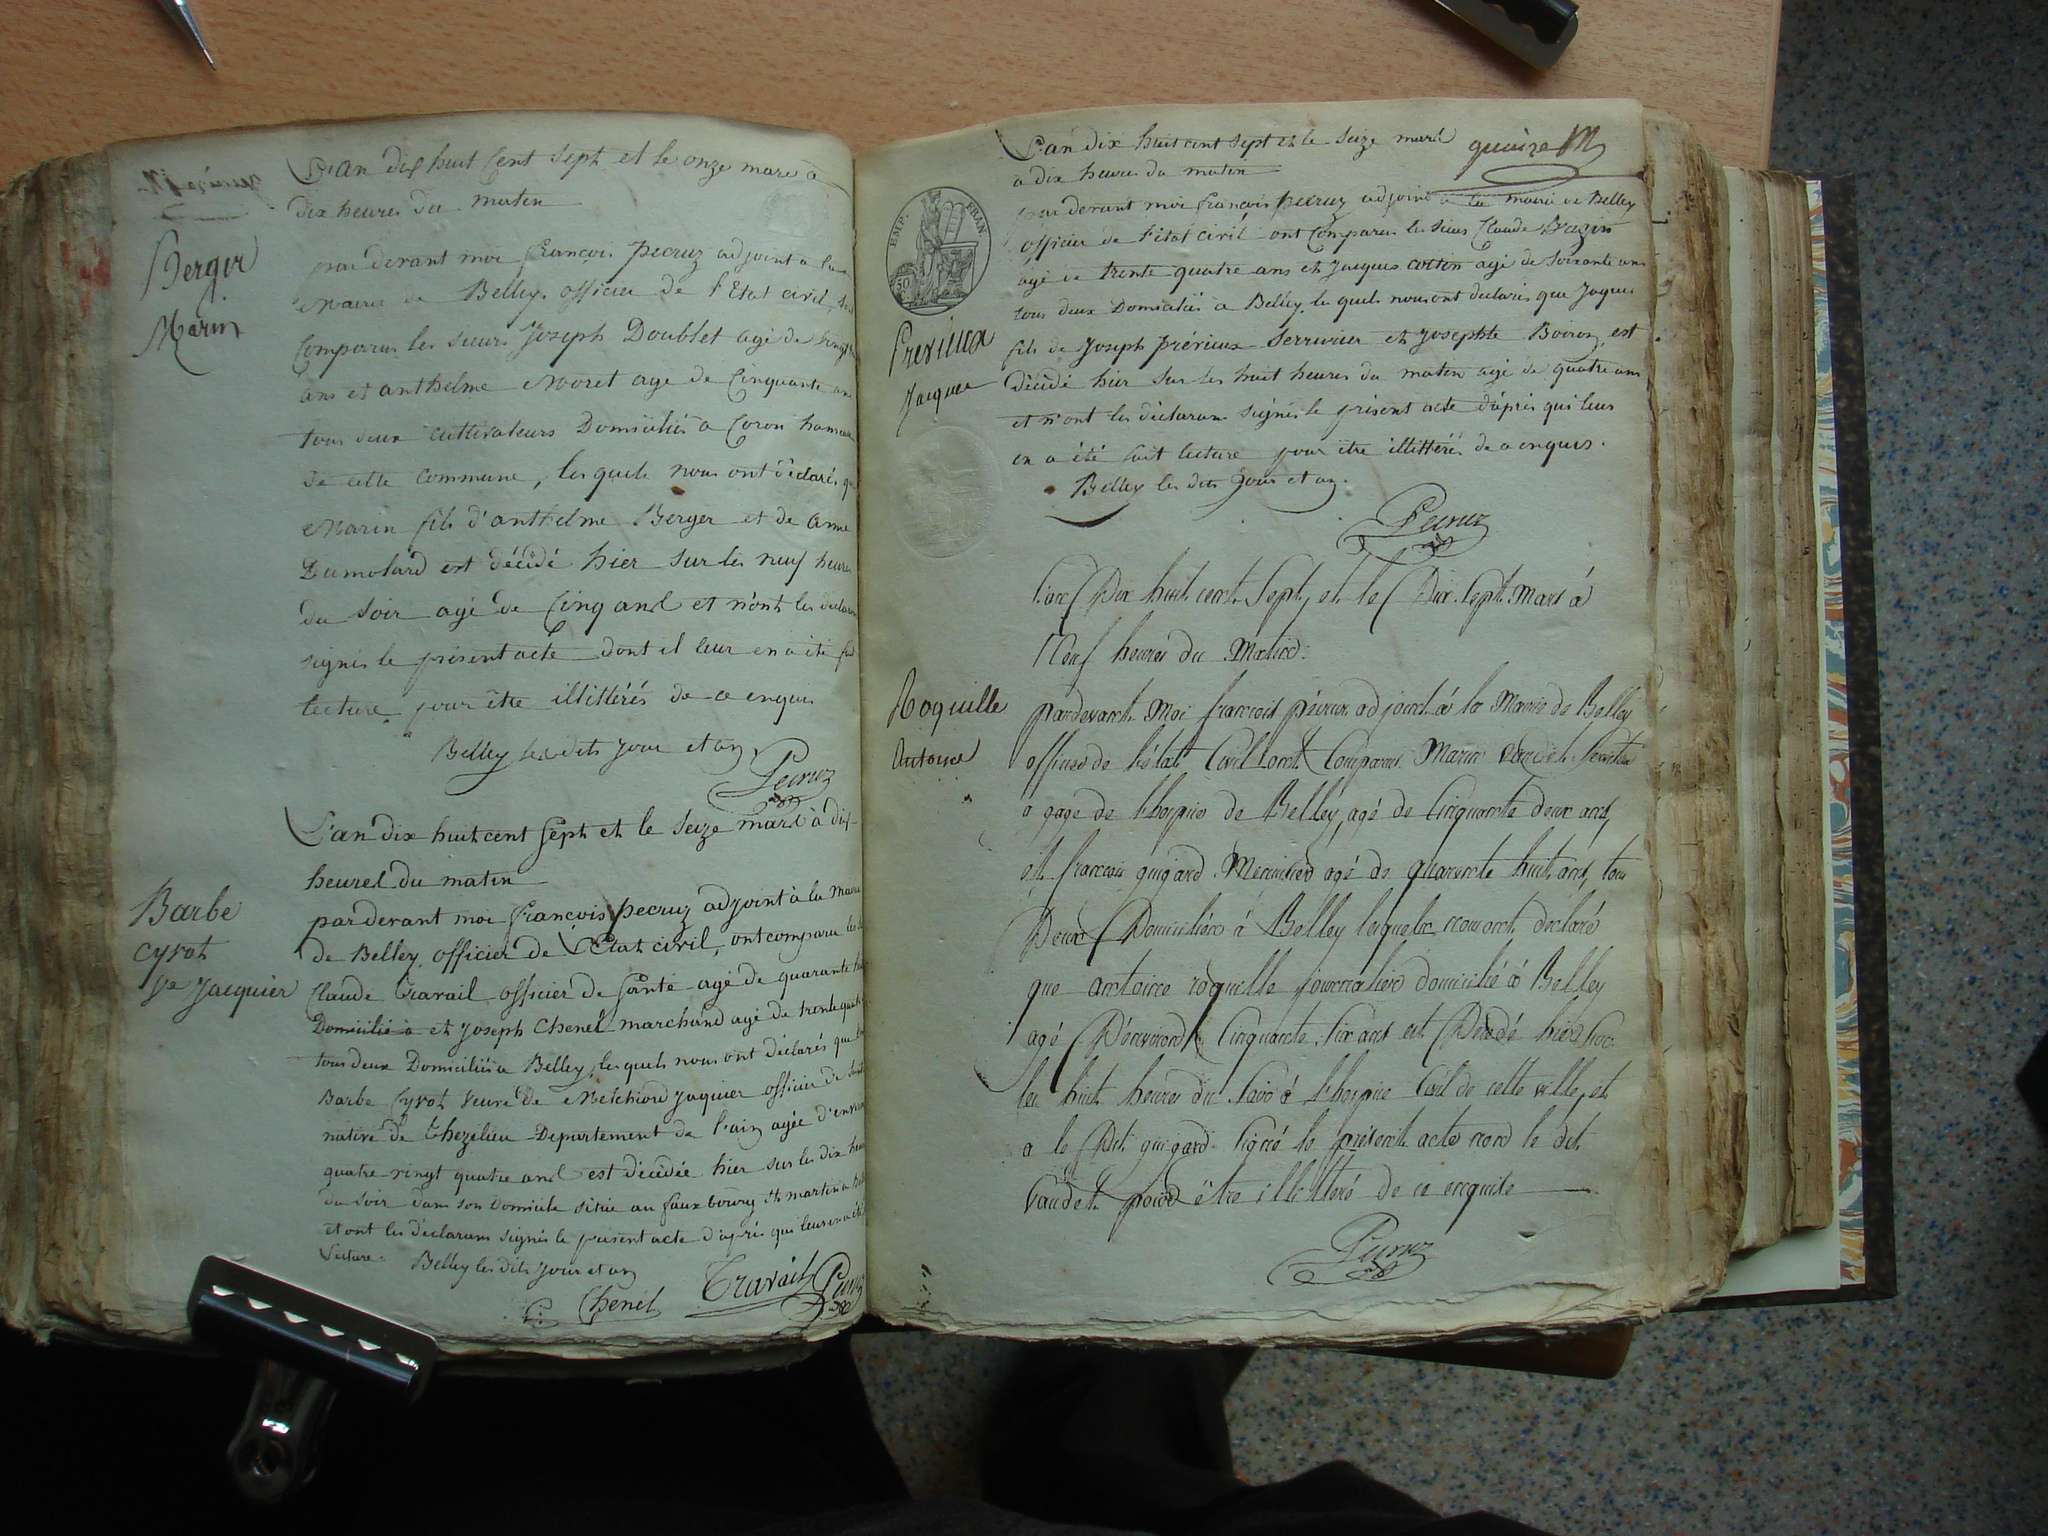 L'an dix huit cent sept et le onze mars à
dix heures du matin
Berger
Marin
par devant moi françois pecruz adjoint a la
Mairie de Belley officier de l'Etat civil,
Comparus les sieurs Joseph Doublet agé de
ans et anthelme Moret age de Cinquante ans
tous deux cultivateurs Domiciliés a Coron hameau
de cette commune, les quels nous ont déclarés que
Marin fils d'anthelme Berger et de anne
Dumolard est décédé hier sur les neuf heures
du soir agé de Cinq ans et n'ont les déclarans
signés le présent acte dont il leur en a été fait
lecture pour être illittérés de ce enquis
Belley les dits jour et an
Pecruz
L'an dix huit cent sept et le seize mars à dix
heures du matin
Barbe
Cyrot
Ve Jacquier
par devant moi françois pecruz adjoint à la mairie
de Belley officier de l'Etat civil, ont comparu les
Claude Travail officier de santé agé de quarante
Domicilié a et Joseph Chenel marchand agé de trente quatre
tous deux Domiciliés a Belley, les quels nous ont déclarés que
Barbe Cyrot veuve de Melchiord Jaquier officier de
native de Thezilieu Departement de l'ain agée d'environ
quatre vingt quatre ans est décédée hier sur les dix heures
du soir dans son Domicile sitüé au fauxbourg St martin a
et ont les déclarans signés le présent acte d'après qui leur en a été
lecture. Belley les dits jour et an
Chenel Travail Pecruz
L'an dix huit cent sept et le seize mars
quinze M
a dix heures du matin
EMP. FRAN.
50
par devant moi françois pecruz adjoint a la mairie de Belley
officier de l'état civil ont comparus les sieurs Claude
agé de trente quatre ans et Jacques cottin agé de soixante ans
tous deux Domiciliés a Belley les quels nous ont declarés que Jaques
Prévieux
Jacques
fils de Joseph prévieux Serrurier et Josephte Bovron est
décédé hier sur les huit heures du matin agé de quatre ans
et n'ont les déclarans signés le présent acte d'après qui leur
en a été fait lecture pour être illittérés de ce enquis.
Belley les dits jour et an.
Pecruz
L'an Dix huit cent Sept, et le Dix Sept Mars à
Neuf heures du Matin.
Roquille
Antoine
pardevant Moi françois pécruz adjoint à la Mairie de Belley
officier de l'état Civil ont Comparus Marin vaudet
a gage de l'hospice de Belley, agé de Cinquante deux ans,
et françois guigard Menuisier agé de quarante huit ans, tous
Deux Domiciliés à Belley lesquels nous ont déclaré
que antoine roquille journalier domicilié à Belley
agé D'environ Cinquante Six ans est Décédé hier sur
les huit heures du soir à l'hospice Civil de cette ville, et
a le Dit guigard signé le présent acte non le dit
Vaudet pour être illittéré de ce enquise
Pecruz